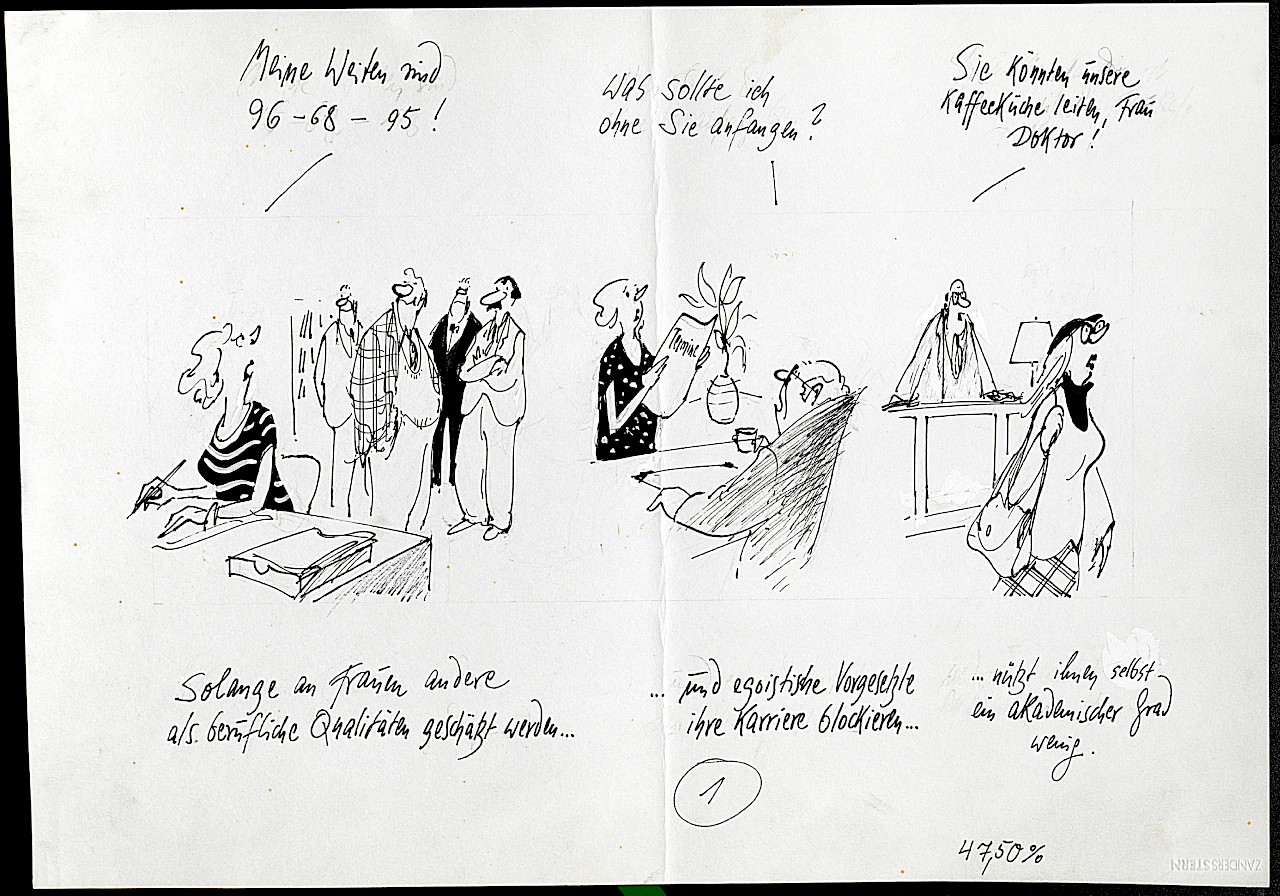 Meine Weiten sind
96 - 68 - 95 !
Was sollte ich
ohne Sie anfangen ?
Sie könnten unsere
Kaffeeküche leiten, Frau
Doktor !
Termine
Solange an Frauen andere
als berufliche Qualitäten geschätzt werden...
... und egoistische Vorgesetzte
ihre Karriere blockieren...
... nützt ihnen selbst
ein akademischer Grad
wenig.
1
47,50%
ZANDERSSTERN